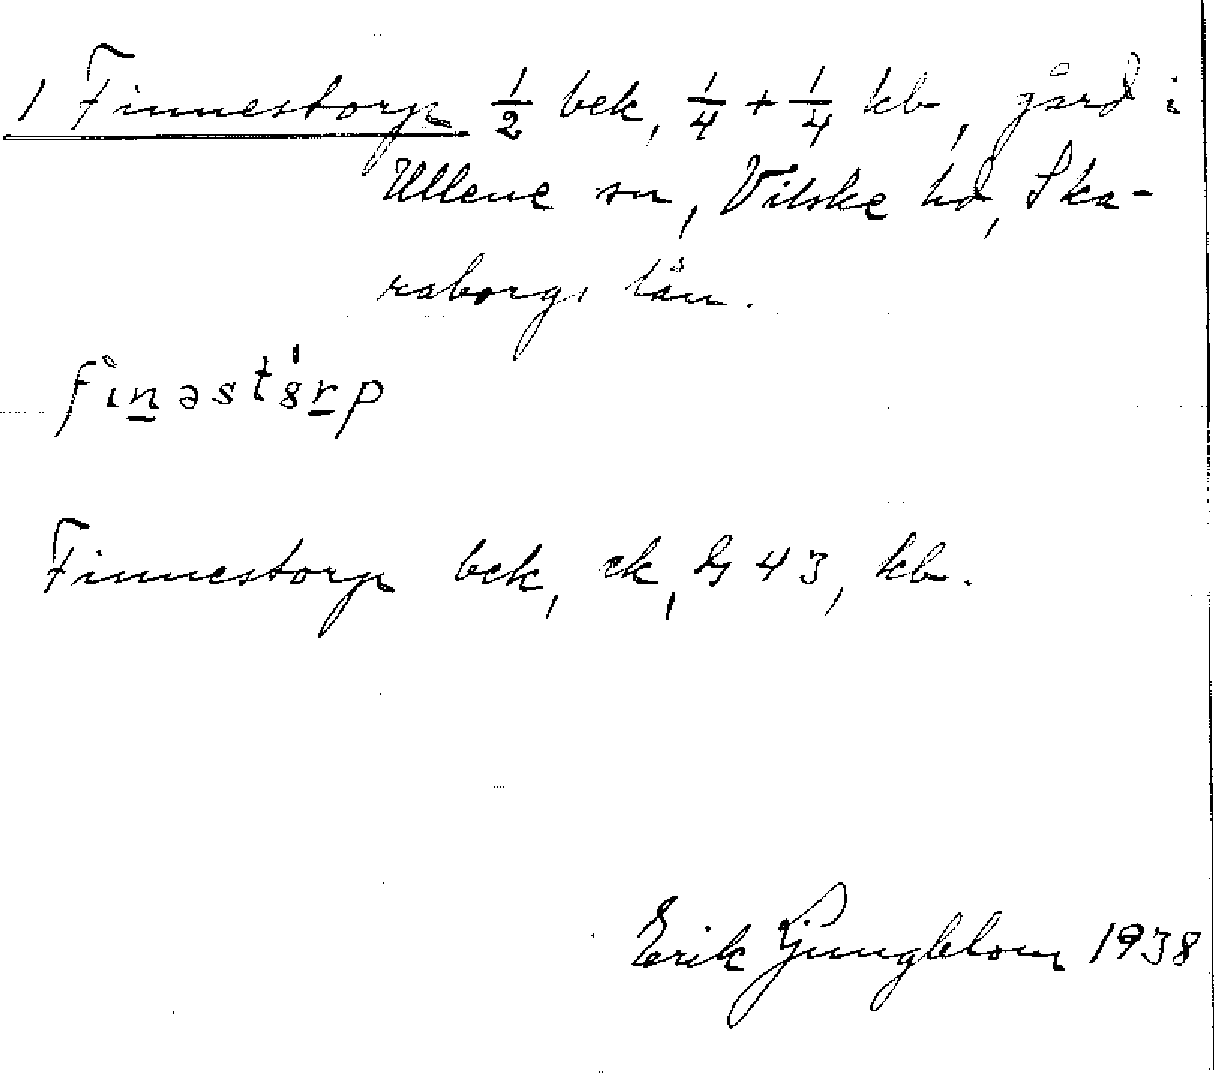 1 Finnestorp 1/2 bek, 1/4 + 1/4 kb, gård i
Ullene sn, Vilske hd, Ska-
raborgs län.
Finnestorp bek, ek, 43, kb.
Erik Ljungblom 1938